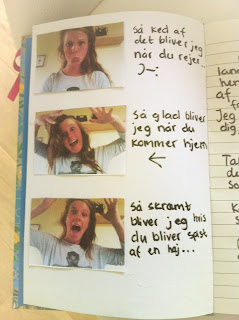 så ked af
det bliver jeg
når du rejser...
)-:
Så glad bliver
jeg når du
kommer hjem
←
så skræmt
bliver jeg hvis
du bliver spist
af en haj...